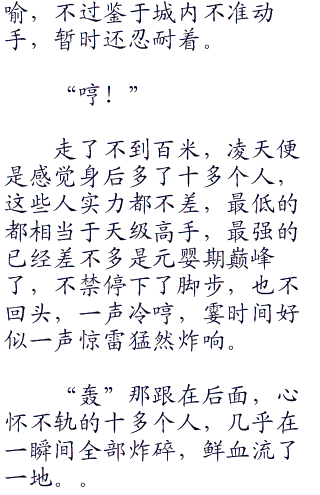 喻，不过鉴于城内不准动
手，暂时还忍耐着。
“哼！”
走了不到百米，凌天便
是感觉身后多了十多个人，
这些人实力都不差，最低的
都相当于天级高手，最强的
已经差不多是元婴期巅峰
了，不禁停下了脚步，也不
回头，一声冷哼，霎时间好
似一声惊雷猛然炸响。
“轰”那跟在后面，心
怀不轨的十多个人，几乎在
一瞬间全部炸碎，鲜血流了
一地。。